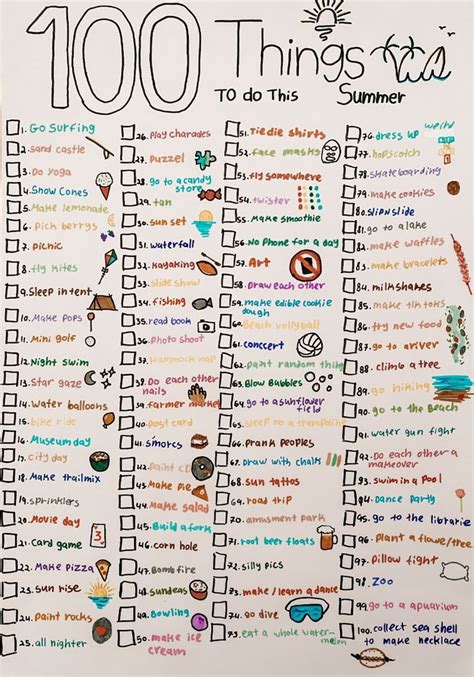 100 Things
TO do This Summer
1. Go Surfing
2. sand castle
3. Do yoga
4. Snow Cones
5. Make lemonade
6. Pick berrys
7. Picnic
8. fly kites
9. Sleep in tent
10. Make Pops
11. Mini golf
12. Night Swim
13. Star gaze
14. Water balloons
15. bike ride
16. Museum day
17. city day
18. Make trailmix
19. sprinklers
20. Movie day
21. card game
3
22. Make Pizza
23. sun rise
24. Paint rocks
25. all nighter
26. Play charades
27. Puzzel
28. go to a candy
store
29. tan
30. sun set
31. waterfall
32. Kayaking
33. slide show
34. fishing
35. read book
36. Photo shoot
37. Hammock nap
38. Do each other
nails
39. farmer market
40. Post card
41. smorcs
42. Paint CD
43. Make Pie
44. Make salad
45. Build a fork
46. corn hole
47. Bomb fire
48. sundeas
49. Bowling
50. Make ice
cream
51. Tiedie shirts
52. face masks
53. fly somewhere
54. twister
55. Make smoothie
56. No Phone for a day
57. Art
58. Draw each other
59. make edible cookie
dough
60. Beach vollyball
61. concert
62. paint random thing
63. Blow Bubbles
64. go to a sunflower
field
65. sleep on a trampoline
66. Prank peoples
67. Draw with chalk
68. sun tattos
69. road trip
70. amusment park
71. root beer floats
72. silly pics
73. make / learn a dance
74. go dive
75. eat a whole water-
melon
76. dress up weird
77. hopscotch
78. skateboarding
79. make cookies
80. slip n slide
81. go to a lake
82. make waffles
83. make bracelets
84. milkshakes
85. make tiktoks
86. try new food
87. go to a river
88. climb a tree
89. go hiking
90. go to the Beach
91. water gun fight
92. Do each other a
makeover
93. swim in a Pool
94. Dance party
95. go to the librarie
96. Plant a flowe/tree
97. Pillow fight
98. Zoo
99. go to a apuarium
100. collect sea shell
to make necklace